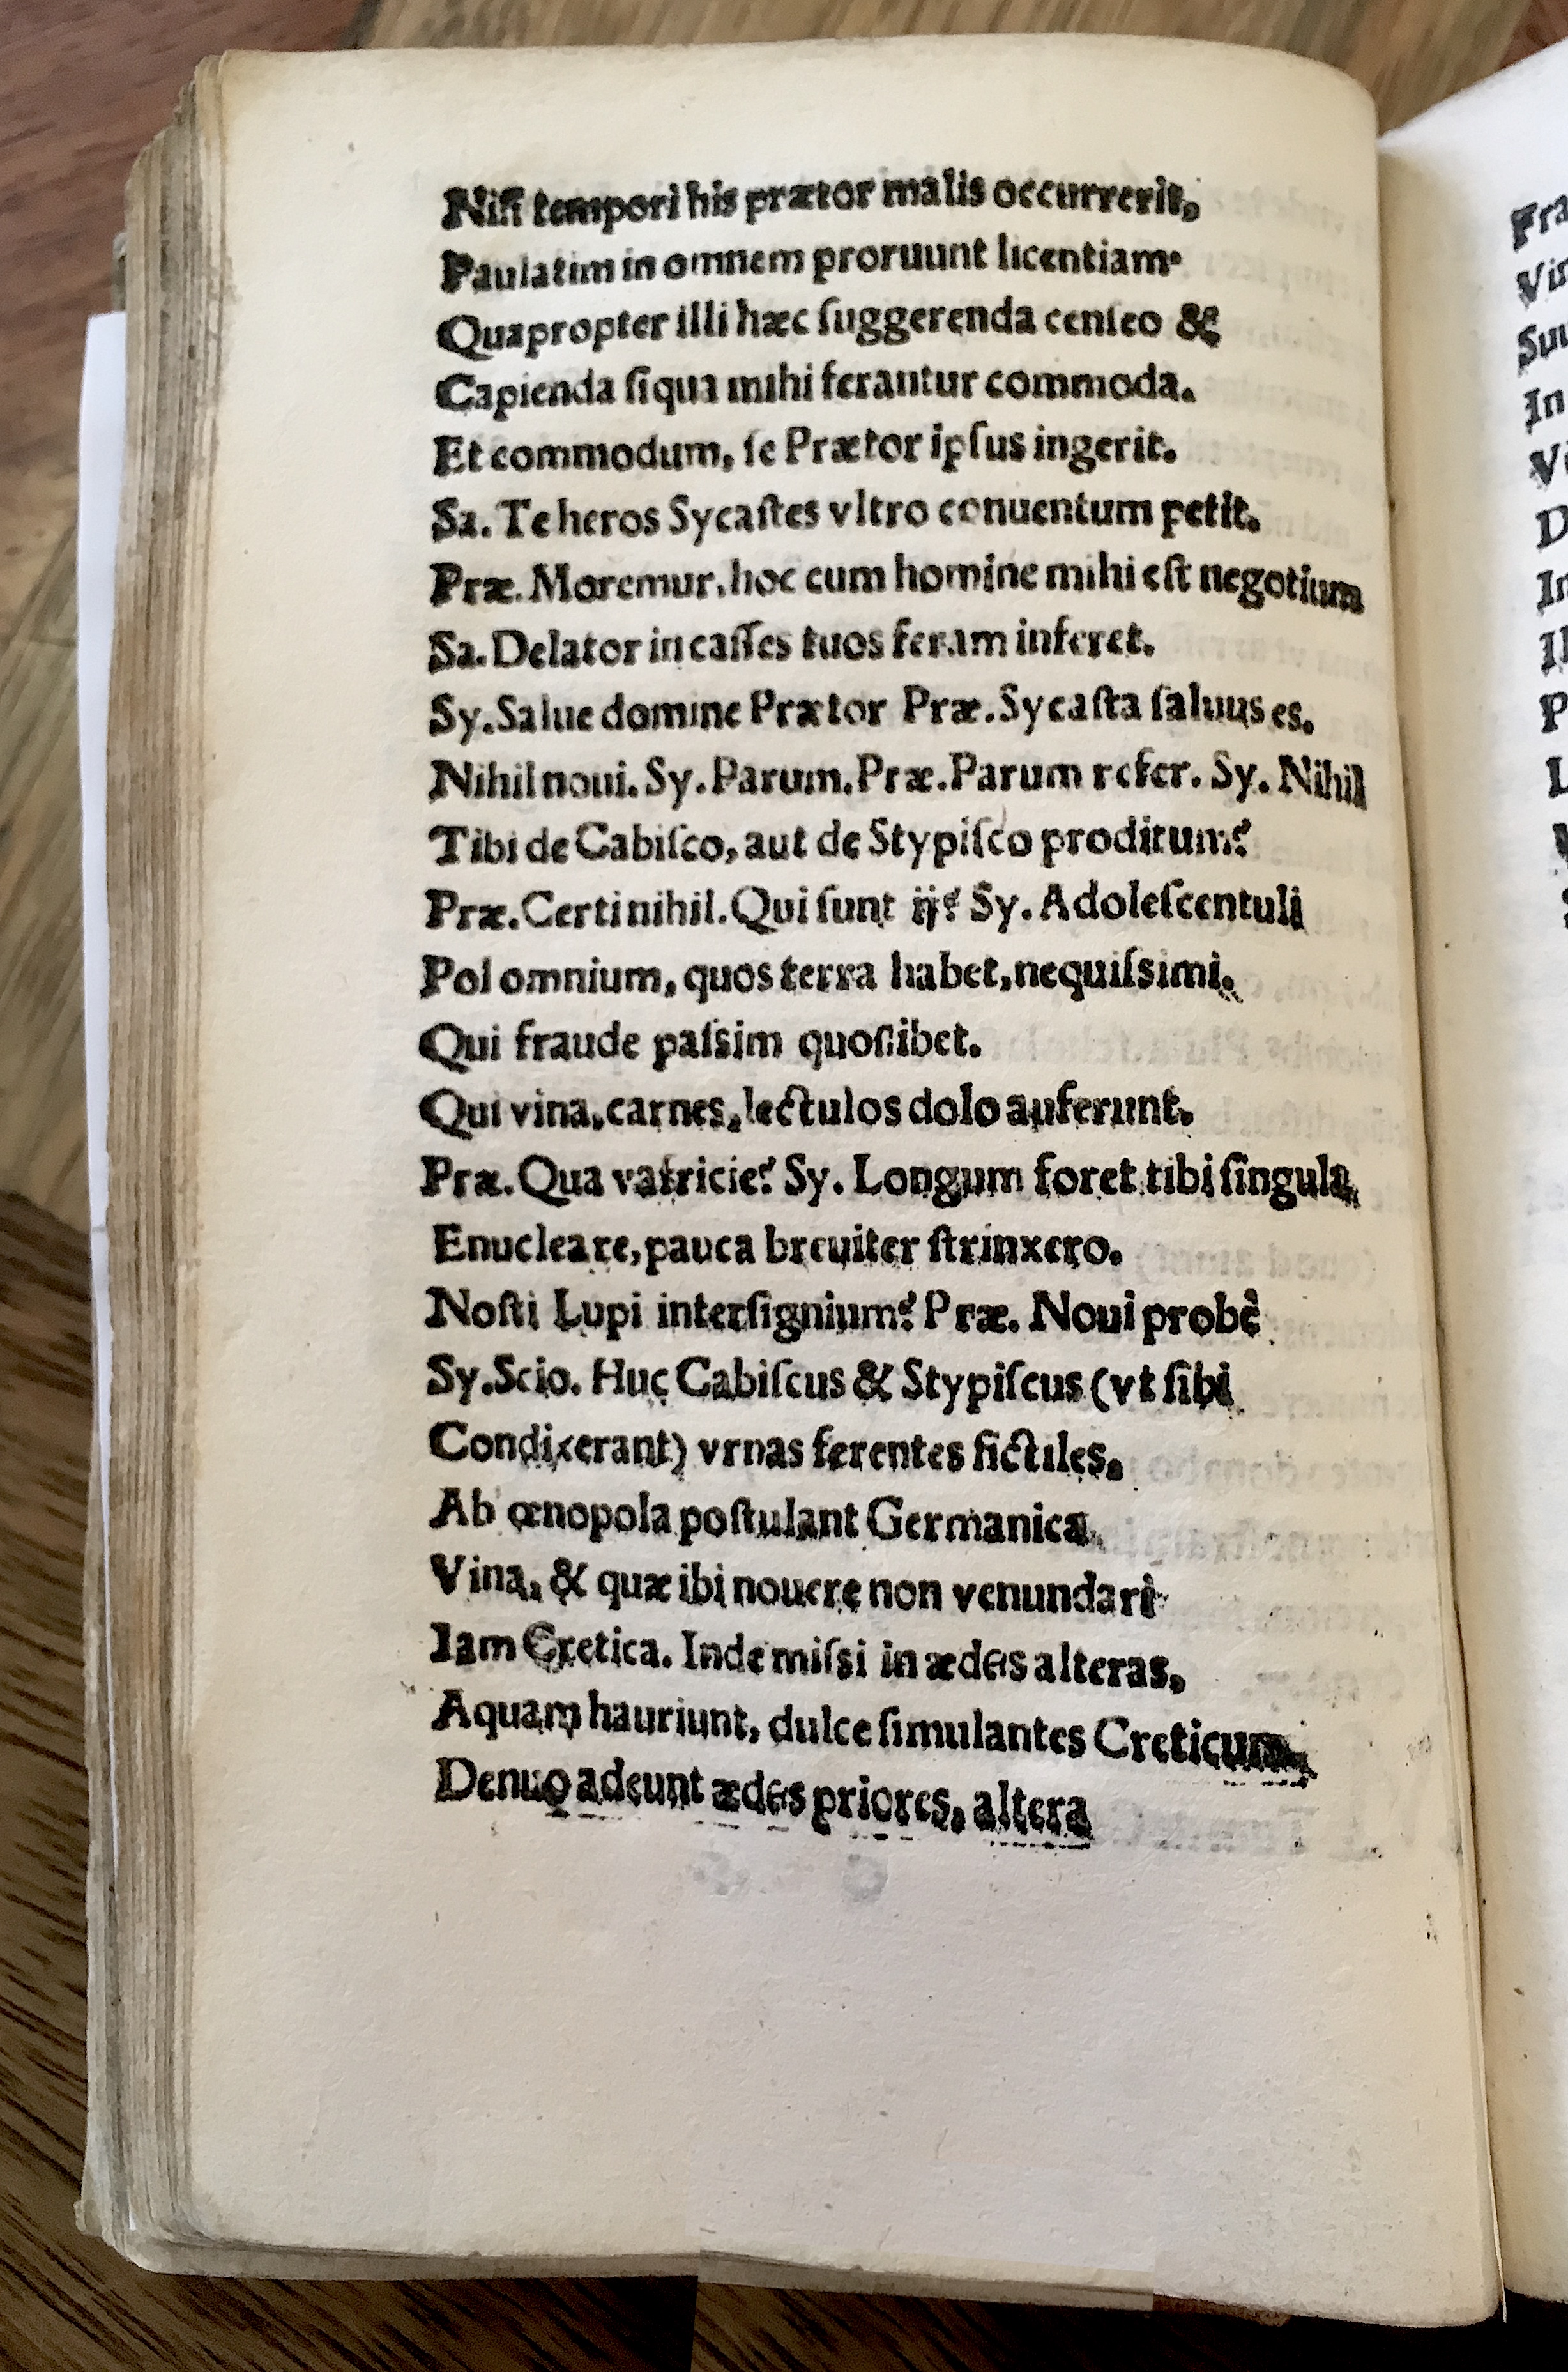 Niſi tempori his prætor malis occurrerit,
Paulatim in omnem proruunt licentiam.
Quapropter illi hæc ſuggerenda cenſeo &
Capienda ſiqua mihi ferantur commoda.
Et commodum, ſe Prætor ipſus ingerit.
Sa. Te heros Sycaſtes vltro conuentum petit.
Præ. Moremur, hoc cum homine mihi eſt negotium
Sa. Delator in caſſes tuos feram inferet.
Sy. Salue domine Prætor Præ. Sycaſta ſaluus es.
Nihil noui. Sy. Parum. Præ. Parum refer. Sy. Nihil
Tibi de Cabiſco, aut de Stypiſco proditum?
Præ. Certi nihil. Qui ſunt ij? Sy. Adoleſcentuli
Pol omnium, quos terra habet, nequiſsimi.
Qui fraude paſsim quoſlibet.
Qui vina, carnes, lectulos dolo auferunt.
Præ. Qua vafricie? Sy. Longum foret tibi ſingula
Enucleare, pauca breuiter ſtrinxero.
Noſti Lupi interſignium? Præ. Noui probè
Sy. Scio. Huc Cabiſcus & Stypiſcus (vt ſibi
Condixerant) vrnas ferentes fictiles,
Ab œnopola poſtulant Germanica
Vina, & quæ ibi nouere non venundari
Iam Cretica. Inde miſsi in ædes alteras,
Aquam hauriunt, dulce ſimulantes Creticum
Denuo adeunt ædes priores, altera
Fra
In
In